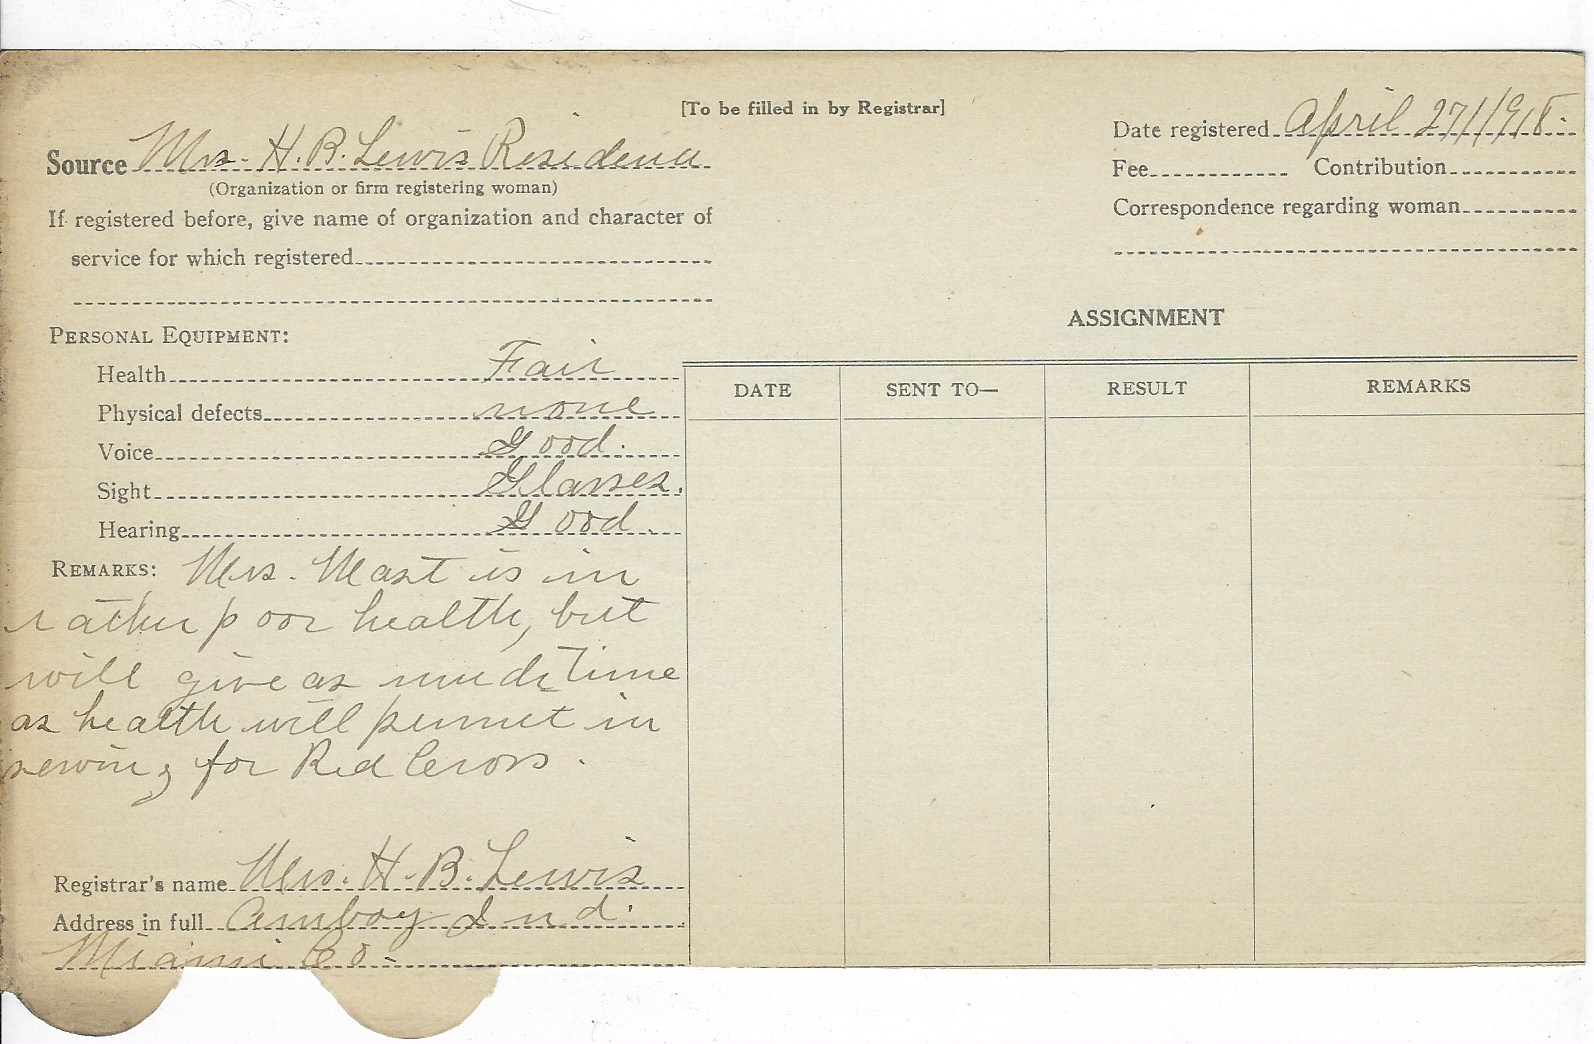 [To be filled in by Registrar]
Source Mrs. H. B. Lewis Residence
(Organization or firm registering woman)
If registered before, give name of organization and character of
service for which registered
Date registered April 27/1918.
Fee Contribution
Correspondence regarding woman
PERSONAL EQUIPMENT:
Health Fair
Physical defects none
Voice Good.
Sight Glasses.
Hearing Good.
REMARKS: Mrs. Mast is in
rather poor health, but
will give as much time
as health will permit in
sewing for Red Cross.
Registrar's name Mrs. H. B. Lewis
Address in full Amboy Ind.
Miami Co.
ASSIGNMENT
DATE SENT TO— RESULT REMARKS